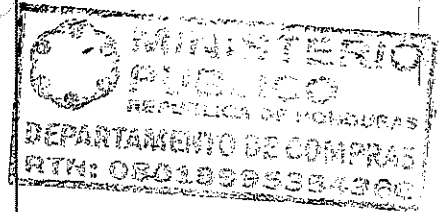 MINISTERIO
PUBLICO
REPUBLICA DE HONDURAS
DEPARTAMENTO DE COMPRAS
RTN: